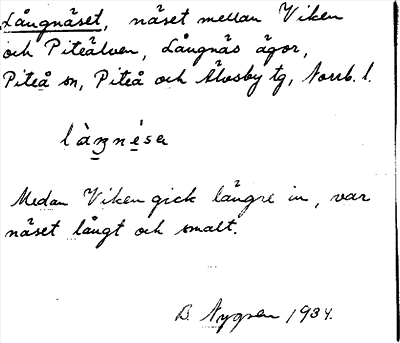 Långnäset, näset mellan Viken
och Piteälven, Långnäs ägor,
Piteå sn, Piteå och Älvsby tg, Norrb. l.
làŋnésa
Medan Viken gick längre in, var
näset långt och smalt.
B. Nygren 1934.